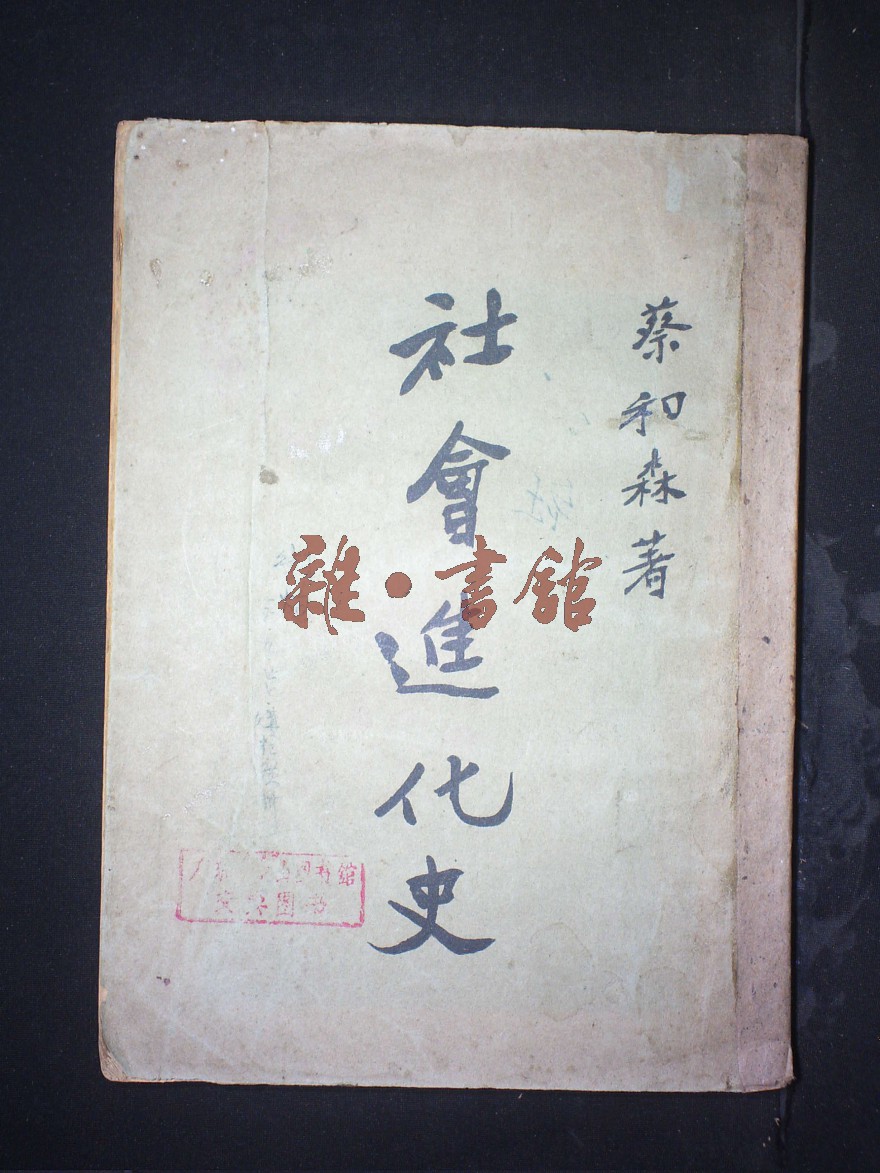 蔡和森著
社會進化史
雜·書館